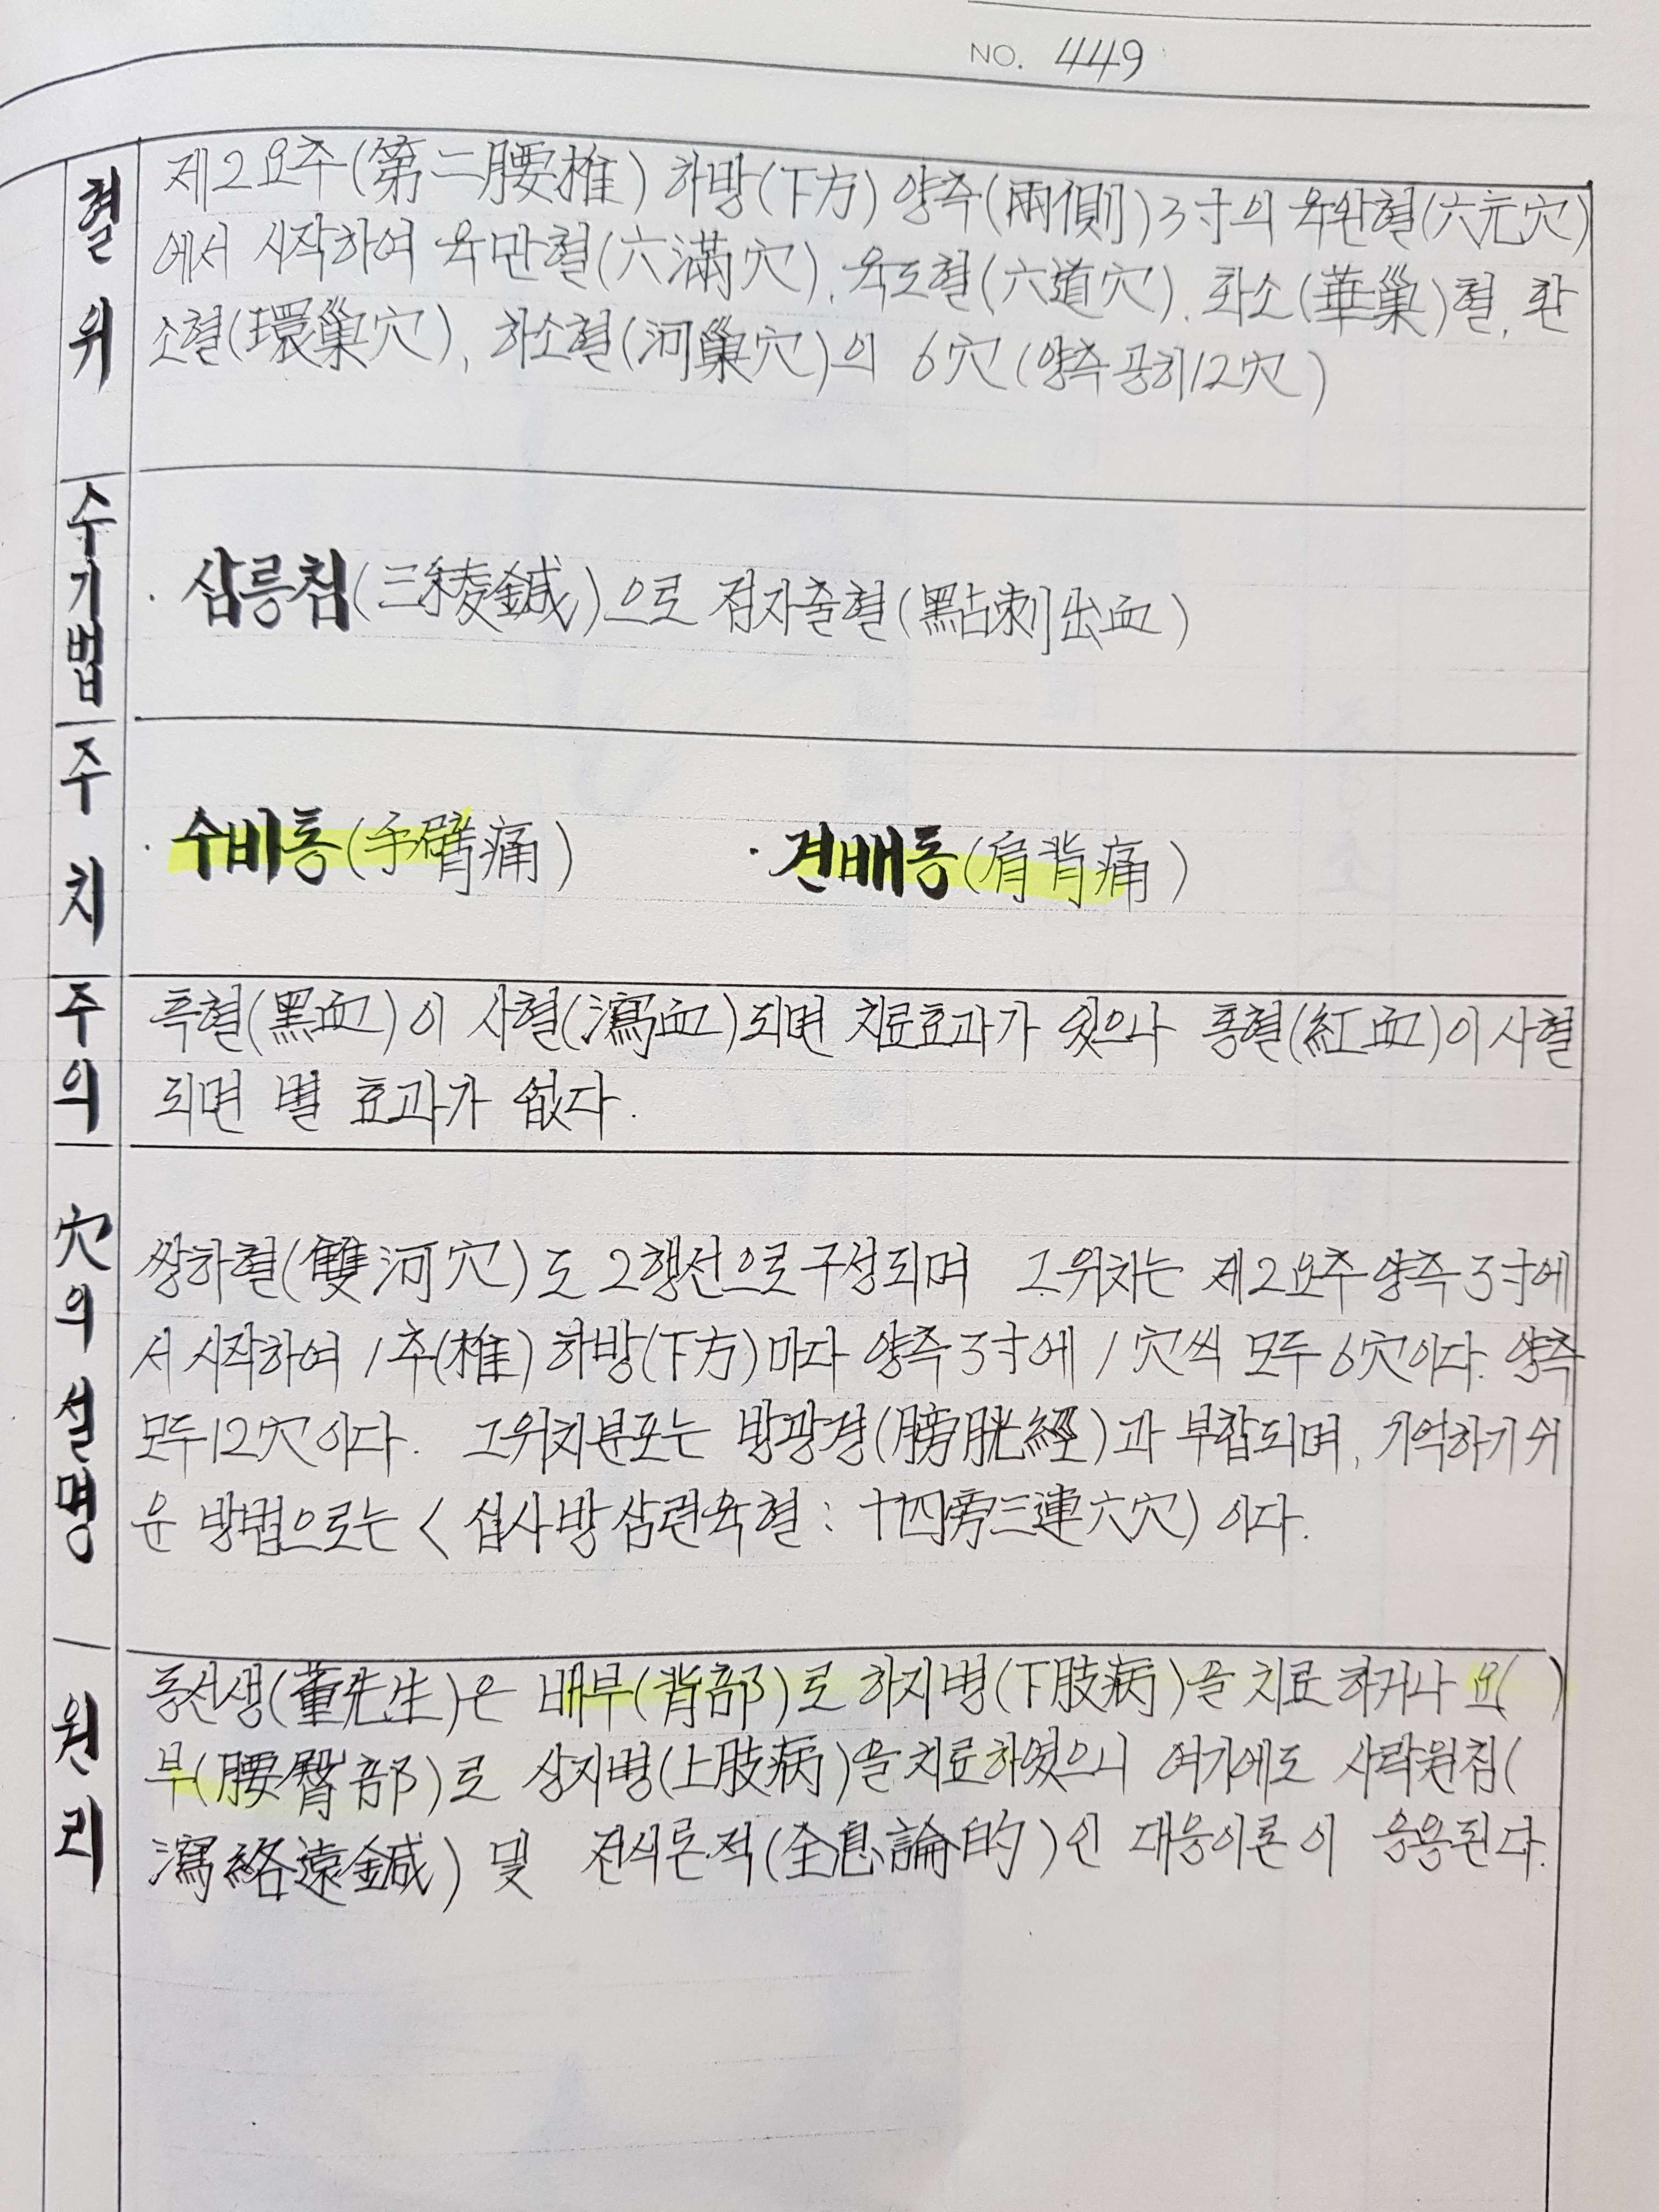 NO. 449
혈위
제2요추(第二腰椎) 하방(下方) 양측(兩側) 3寸의 육완혈(六元穴)
에서 시작하여 육만혈(六滿穴), 육도혈(六道穴), 화소(華巢)혈, 환
소혈(環巢穴), 하소혈(河巢穴)의 6穴(양측공히12穴)
수기법
· 삼릉침(三稜鍼)으로 점자출혈(點刺出血)
주치
· 수비통(手臂痛) · 견배통(肩背痛)
주의
흑혈(黑血)이 사혈(瀉血)되면 치료효과가 있으나 홍혈(紅血)이 사혈
되면 별 효과가 없다.
穴의 설명
쌍하혈(雙河穴)도 2행선으로 구성되며 그위치는 제2요추양측 3寸에
서 시작하여 1추(椎) 하방(下方)마다 양측 3寸에 1穴씩 모두 6穴이다. 양측
모두12穴이다. 그위치분포는 방광경(膀胱經)과 부합되며, 기억하기 쉬
운 방법으로는 < 십사방삼련육혈 : 十四旁三連六穴) 이다.
원리
동선생(董先生)은 배부(背部)로 하지병(下肢病)을 치료하거나 요( )
부(腰臀部)로 상지병(上肢病)을 치료하였으니 여기에도 사락원침(
瀉絡遠鍼) 및 전식론적(全息論的)인 대응이론이 응용된다.